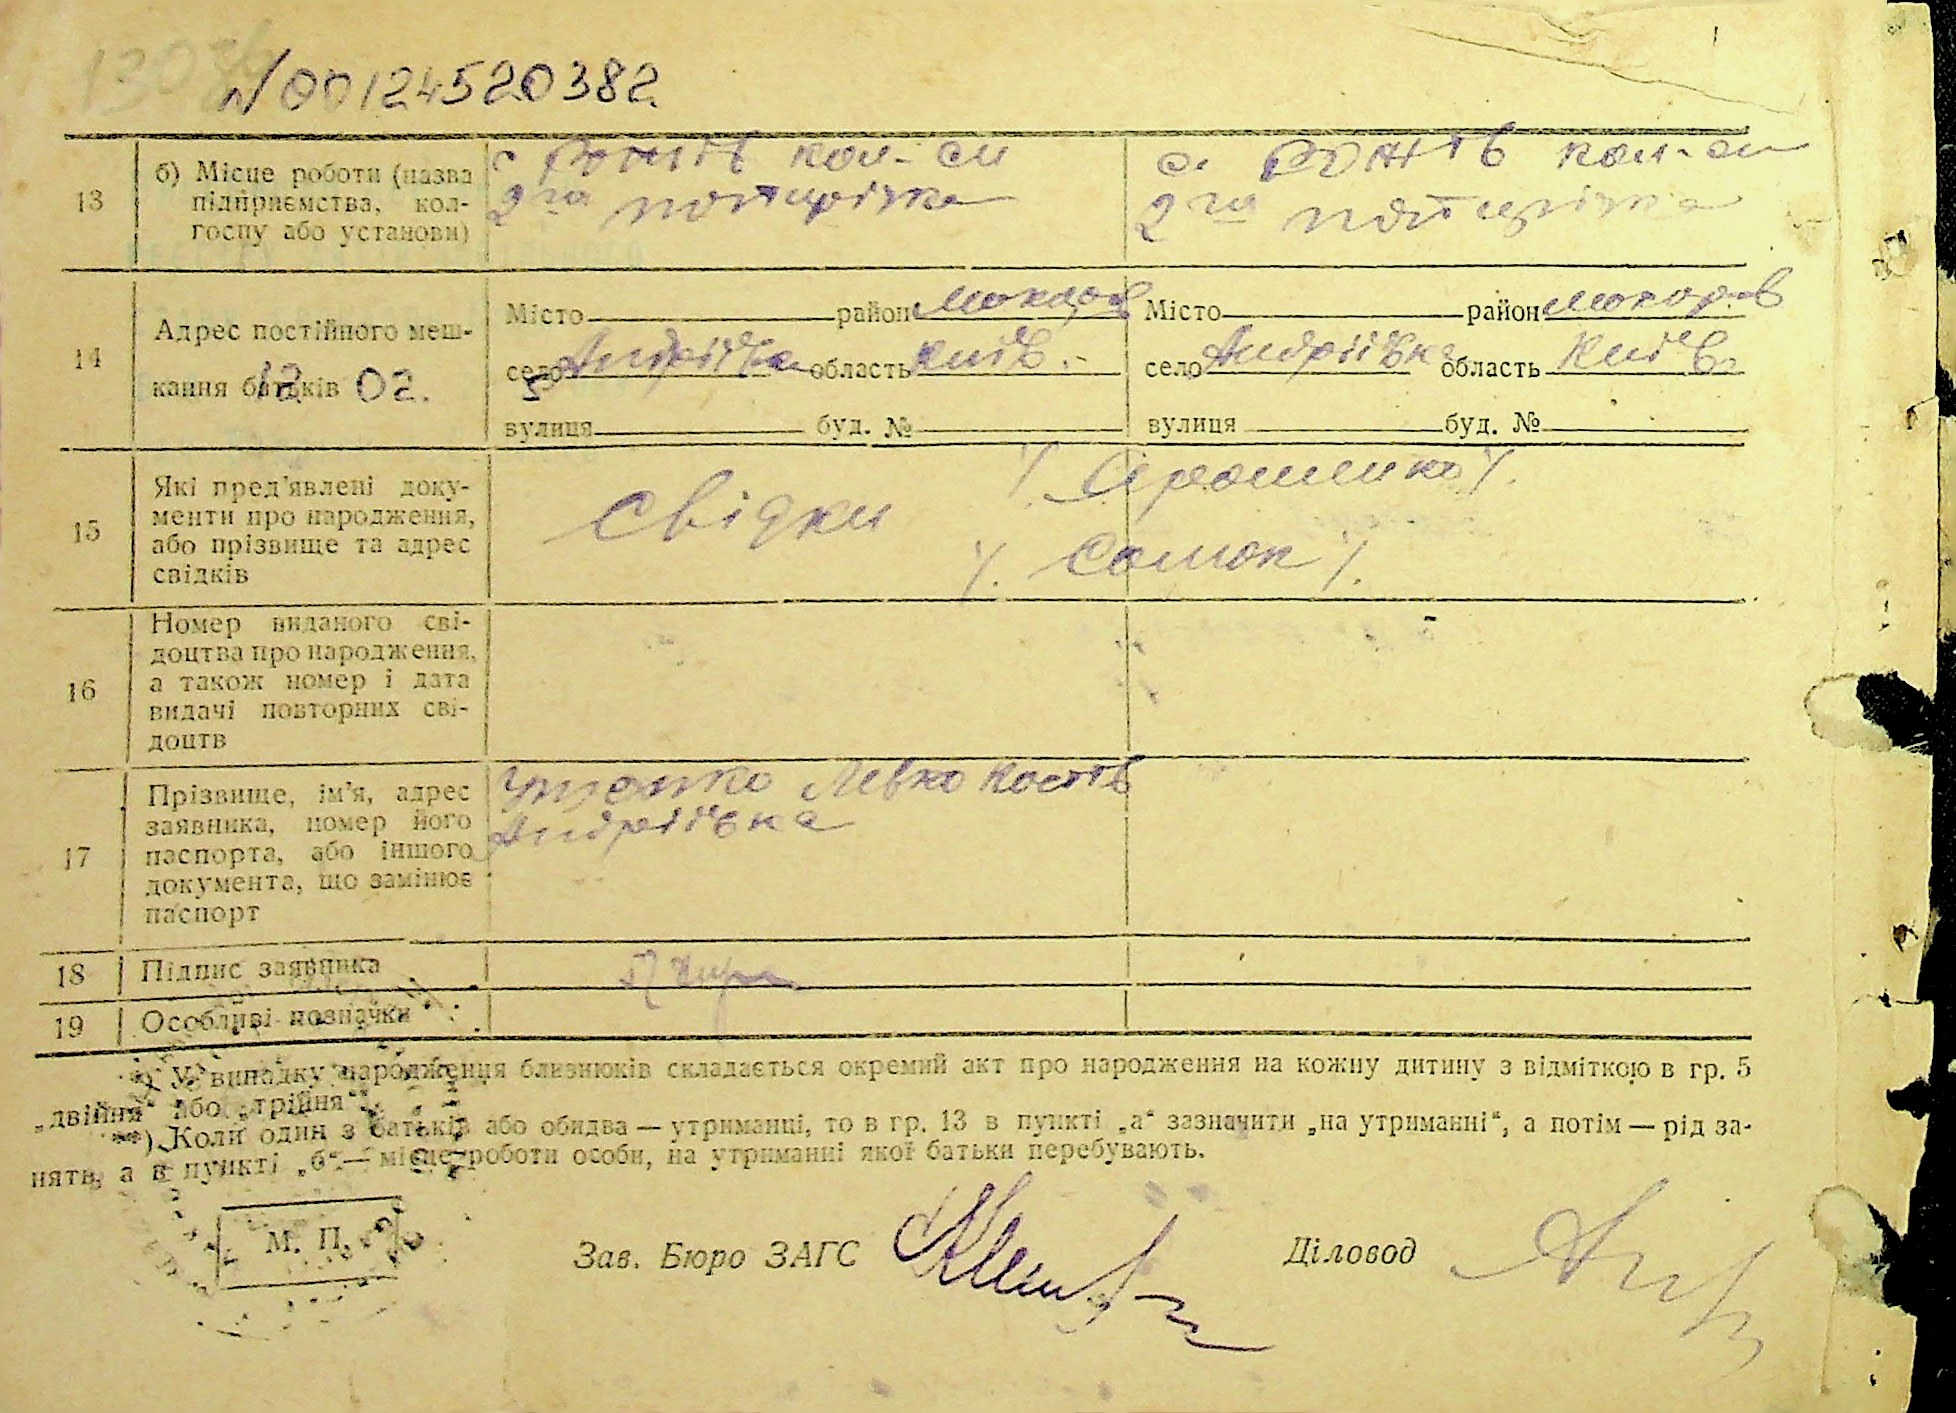 N00124520382
13
б) Місце роботи (назва
підприємства, кол-
госпу або установи)
2га
2га
14
Адрес постійного меш-
кання батьків
12 02.
Місто район Макарів
село Андріївка область Київ.
вулиця буд. №
Місто район Макарів
село Андріївка область Київ.
вулиця буд. №
15
Які пред'явлені доку-
менти про народження,
або прізвище та адрес
свідків
Свідки
16
Номер виданого сві-
доцтва про народження,
а також номер і дата
видачі повторних сві-
доцтв
17
Прізвище, ім'я, адрес
заявника, номер його
паспорта, або іншого
документа, що замінює
паспорт
Левко Кость
Андріївка
18
Підпис заявника
19
Особливі позначки
*) У випадку народження близнюків складається окремий акт про народження на кожну дитину з відміткою в гр. 5
„двійня“ або „трійня“.
**) Коли один з батьків або обидва — утриманці, то в гр. 13 в пункті „а“ зазначити „на утриманні“, а потім — рід за-
нять, а в пункті „б“ — місце роботи особи, на утриманні якої батьки перебувають.
М. П.
Зав. Бюро ЗАГС
Діловод